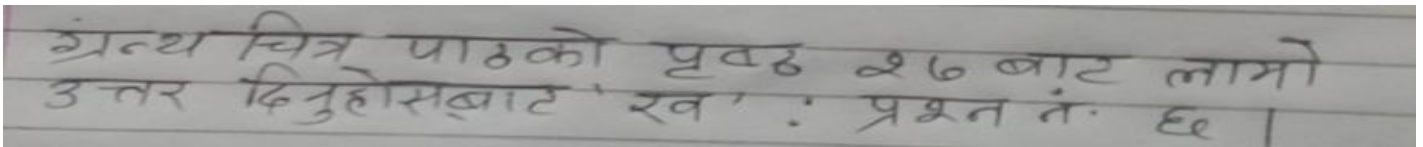 ग्रन्थ चित्र पाठको पृष्ठ २७ बाट लामो
उत्तर दिनुहोस्बाट 'ख' : प्रश्न नं. ६ ।